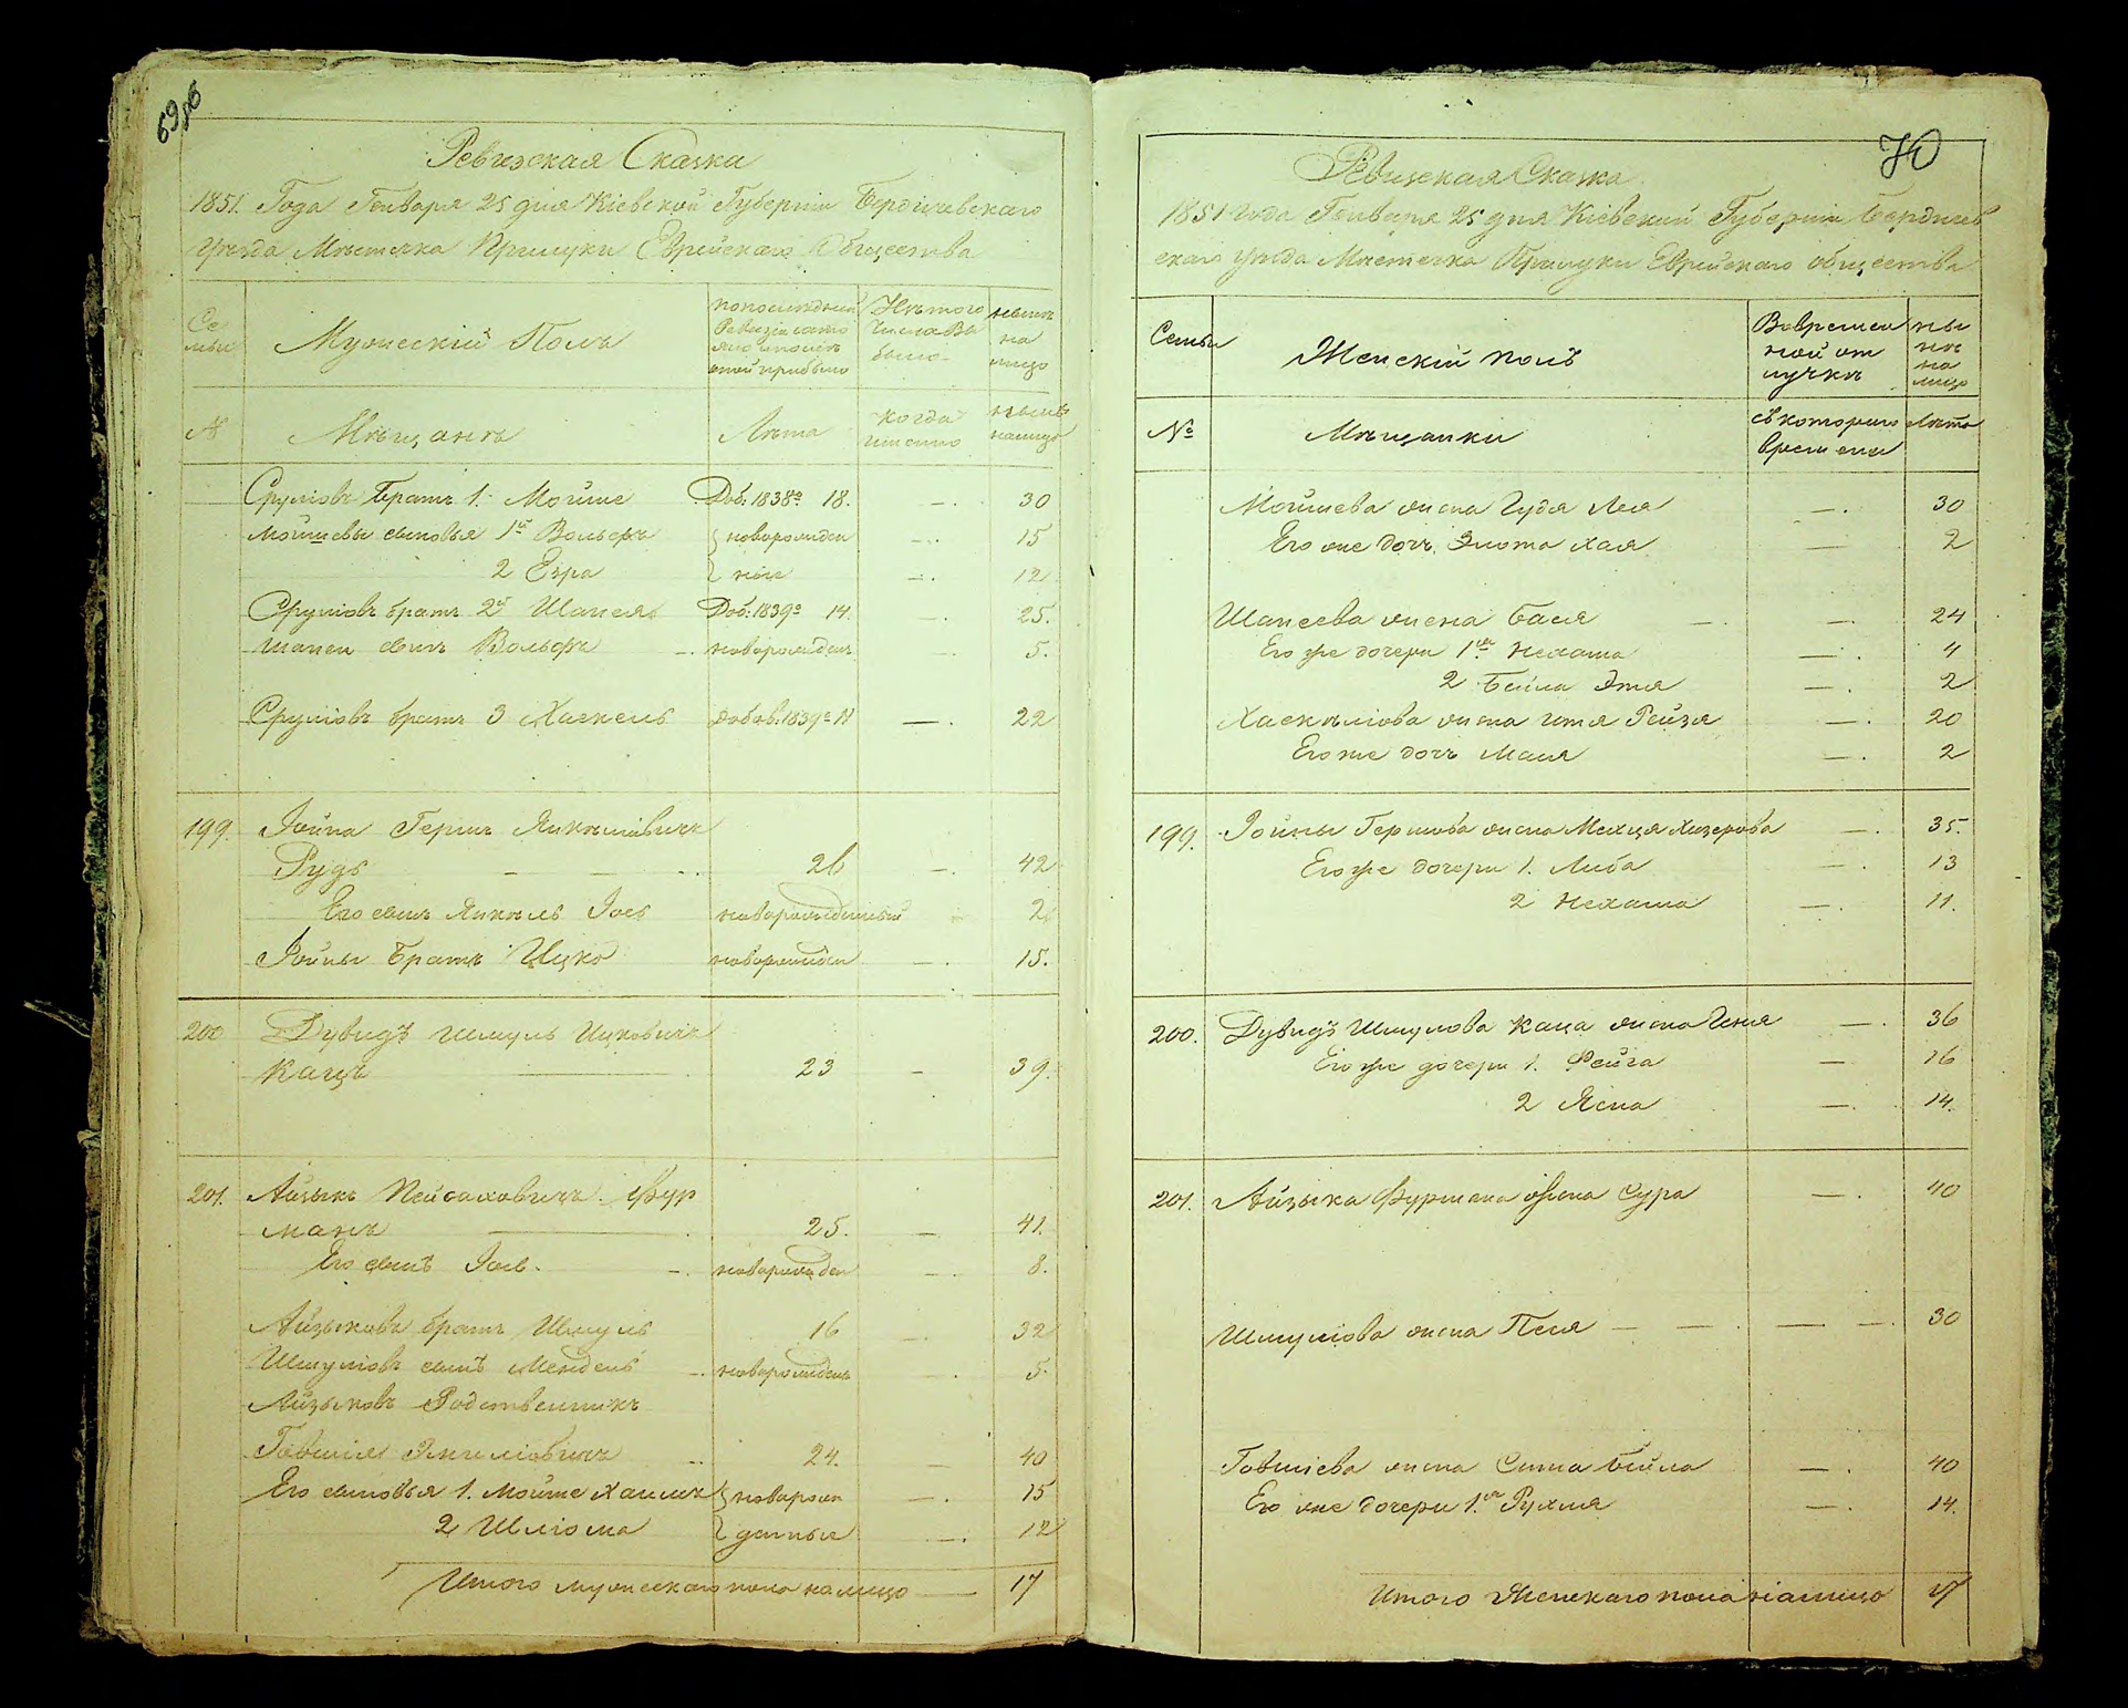 69об
Ревизская Сказка
1851. Года Генваря 25 дня Кіевской Губерніи Бердичевскаго
Уѣзда Мѣстечка Прилуки Еврейскаго Общества
Семьи
Мужескій Полъ
По последней Ревизіи состояло и после оной прибыло
Изъ того числа выбыло
нынѣ на лицо
№
Мѣщанѣ
Лѣта
когда именно
нынѣ налицо
Сруліовъ Братъ 1. Мойше Доб: 1838го 18. — 30
Мойшевы сыновья 1й Вольфъ новорожден — 15
2 Езра ные — 12
Сруліовъ братъ 2й Шапсель Доб: 1839го 14. — 25.
Шапси сынъ Вольфъ новорожден — 5.
Сруліовъ братъ 3 Хаскель добав: 1839го 11 — 22
199. Іойна Герш Янкеліовичъ
Рудь — 26 — 42
Его сынъ Янкель Іось новорожденный 2
Іойны братъ Ицко новорожден — 15.
200 Дувидъ Шмуль Ицковичъ
Кацъ — 23 — 39.
201. Айзыкъ Пейсаховичъ Фур
манъ — 25. — 41.
Его сынъ Іось. — новорожден — 8.
Айзыковъ братъ Шмуль 16 — 32
Шмуліовъ сынъ Мендель новорожден — 5.
Айзыковъ Родственникъ
Говшія 24. — 40
Его сыновья 1. Мойше Хаимъ новорож — 15
2 Шліома денные — 12
Итого мужескаго пола налицо — 17
70
Ревизская Сказка
1851 года Генваря 25 дня Кіевской Губерніи Бердичев
скаго уѣзда Мѣстечка Прилуки Еврейскаго общества
Семьи
Женскій полъ
Вовременной отлучкѣ
нынѣ на лицо
№
Мѣщанки
съ котораго времени
Лѣта
Мойшева жена Гудя Лея — 30
Его же дочь Злота Хая — 2
Шапсева жена Бася — 24
Его же дочери 1я Нехама — 4
2 Бейла Этя — 2
Хаскеліова жена Итя Рейзя — 20
Его же дочь Маля — 2
199. Іойны Гершова жена — 35.
Его же дочери 1. Либа — 13
2 Нехама — 11.
200. Дувидъ Шмулова Каца жена Геня — 36
Его же дочери 1. Фейга — 16
2 Ясна — 14.
201. Айзыка Фурмана жена Сура — 40
Шмуліова жена Песя — 30
Говшіева жена Сима Бейла — 40
Его же дочери 1я Рухля — 14.
Итого Женскаго пола налицо 17